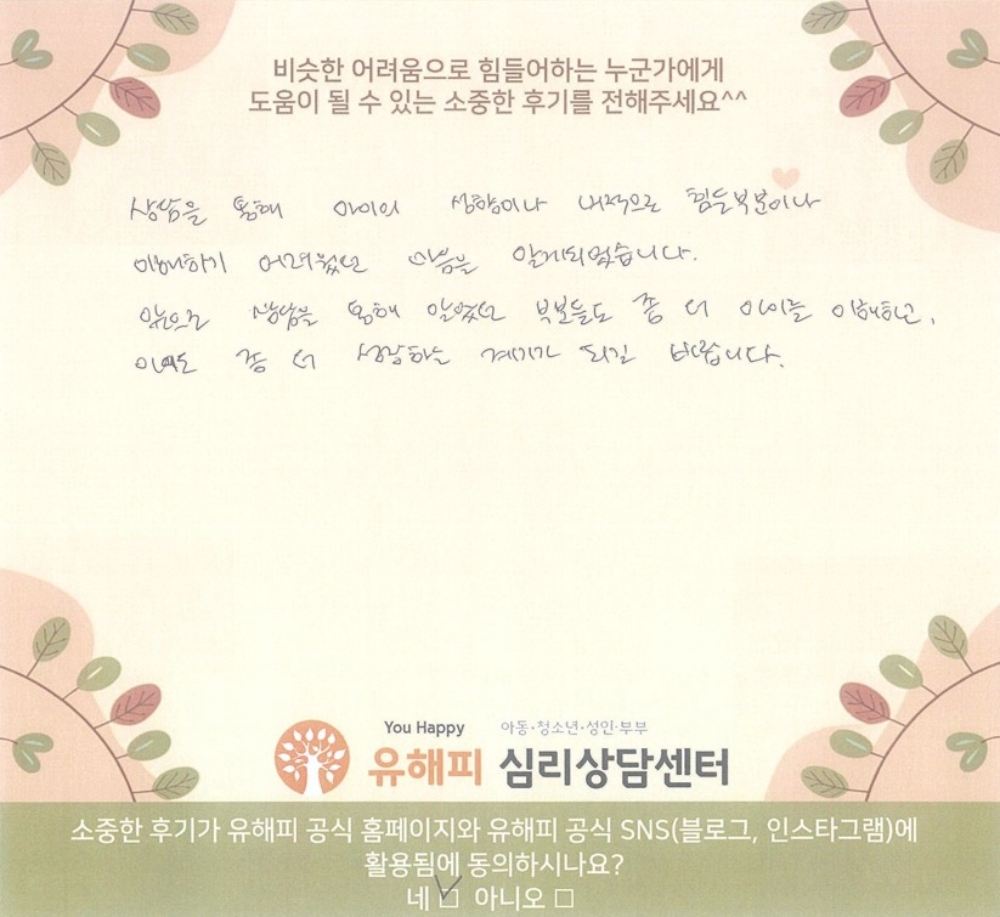 비슷한 어려움으로 힘들어하는 누군가에게
도움이 될 수 있는 소중한 후기를 전해주세요^^
상담을 통해 아이의 성향이나 내적으로 힘든부분이나
이해하기 어려웠던 마음을 알게되었습니다.
앞으로 상담을 통해 알았던 부분들도 좀 더 아이를 이해하고,
좀 더 성장하는 계기가 되길 바랍니다.
You Happy 아동·청소년·성인·부부
유해피 심리상담센터
소중한 후기가 유해피 공식 홈페이지와 유해피 공식 SNS(블로그, 인스타그램)에
활용됨에 동의하시나요?
네 ☑ 아니오 □